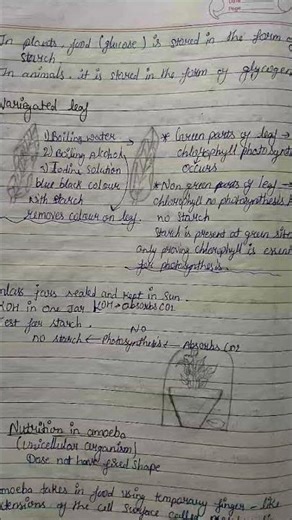 Date
Page
In plants, food (glucose) is stored in the form of
starch.
In animals, it is stored in the form of glycogen
Variegated leaf
1) Boiling water
2) Boiling Alchol
3) Iodine solution
blue black colour
with starch
removes colour on leaf.
* Green parts of leaf →
chlorophyll photosynthe
occurs
* Non green parts of leaf →
chlorophyll no photosynthesis
no starch
Starch is present at green site
only proving chlorophyll is essent
for photosynthesis.
jars sealed and kept in Sun.
KOH in one jar KOH → absorbs CO2
Test for starch.
NO
no starch ← Photosynthesis ← Absorbs CO2
Nutrition in amoeba
(Unicellular organism)
Dose not have fixed shape
amoeba takes in food using temporary finger-like
extensions of the cell surface called